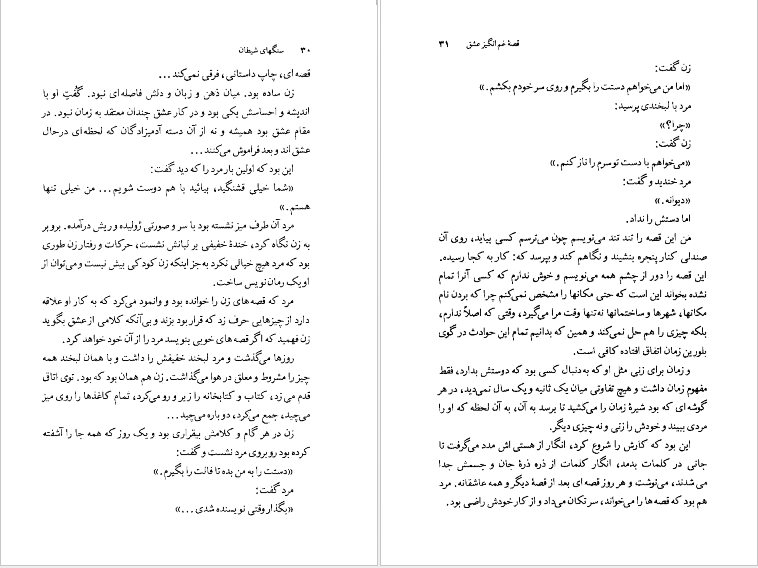 ۳۰ سنگهای شیطان
قصه ای، چاپ داستانی، فرقی نمی‌کند...
زن ساده بود. میان ذهن و زبان و دلش فاصله‌ای نبود. گفُتِ او با
اندیشه و احساسش یکی بود و در کار عشق چندان معتقد به زمان نبود. در
مقام عشق بود همیشه و نه از آن دسته آدمیزادگان که لحظه‌ای درحال
عشق‌اند و بعد فراموش می‌کنند...
این بود که اولین بار مرد را که دید گفت:
«شما خیلی قشنگید، بیائید با هم دوست شویم... من خیلی تنها
هستم.»
مرد آن طرف میز نشسته بود با سر و صورتی ژولیده و ریش درآمده. بروبر
به زن نگاه کرد، خندهٔ خفیفی بر لبانش نشست، حرکات و رفتار زن طوری
بود که مرد هیچ خیالی نکرد به‌جز اینکه زن کودکی بیش نیست و می‌توان از
او یک رمان‌نویس ساخت.
مرد که قصه‌های زن را خوانده بود و وانمود می‌کرد که به کار او علاقه
دارد از چیزهایی حرف زد که قرار بود بزند و بی‌آنکه کلامی از عشق بگوید
زن فهمید که اگر قصه‌های خوبی بنویسد مرد را از آن خود خواهد کرد.
روزها می‌گذشت و مرد لبخند خفیفش را داشت و با همان لبخند همه
چیز را مشروط و معلق در هوا می‌گذاشت. زن هم همان بود که بود. توی اتاق
قدم می‌زد، کتاب و کتابخانه را زیر و رو می‌کرد، تمام کاغذها را روی میز
می‌چید، جمع می‌کرد، دوباره می‌چید...
زن در هر گام و کلامش بیقراری بود و یک روز که همه جا را آشفته
کرده بود روبروی مرد نشست و گفت:
«دستت را به من بده تا فالت را بگیرم.»
مرد گفت:
«بگذار وقتی نویسنده شدی...»
قصهٔ غم انگیز عشق ۳۱
زن گفت:
«اما من می‌خواهم دستت را بگیرم و روی سر خودم بکشم.»
مرد با لبخندی پرسید:
«چرا؟»
زن گفت:
«می‌خواهم با دست تو سرم را ناز کنم.»
مرد خندید و گفت:
«دیوانه.»
اما دستش را نداد.
من این قصه را تند تند می‌نویسم چون می‌ترسم کسی بیاید، روی آن
صندلی کنار پنجره بنشیند و نگاهم کند و بپرسد که: کار به کجا رسیده.
این قصه را دور از چشم همه می‌نویسم و خوش ندارم که کسی آنرا تمام
نشده بخواند این است که حتی مکانها را مشخص نمی‌کنم چرا که بردن نام
مکانها، شهرها و ساختمانها نه‌تنها وقت مرا می‌گیرد، وقتی که اصلاً ندارم،
بلکه چیزی را هم حل نمی‌کند و همین که بدانیم تمام این حوادث در گوی
بلورین زمان اتفاق افتاده کافی است.
و زمان برای زنی مثل او که به‌دنبال کسی بود که دوستش بدارد، فقط
مفهوم زمان داشت و هیچ تفاوتی میان یک ثانیه و یک سال نمی‌دید، در هر
گوشه‌ای که بود شیرهٔ زمان را می‌کشید تا برسد به آن، به آن لحظه که او را
مردی ببیند و خودش را زنی و نه چیزی دیگر.
این بود که کارش را شروع کرد، انگار از هستی‌اش مدد می‌گرفت تا
جانی در کلمات بدمد، انگار کلمات از ذره ذرهٔ جان و جسمش جدا
می شدند، می‌نوشت و هر روز قصه‌ای بعد از قصهٔ دیگر و همه عاشقانه. مرد
هم بود که قصه‌ها را می‌خواند، سر تکان می‌داد و از کار خودش راضی بود.